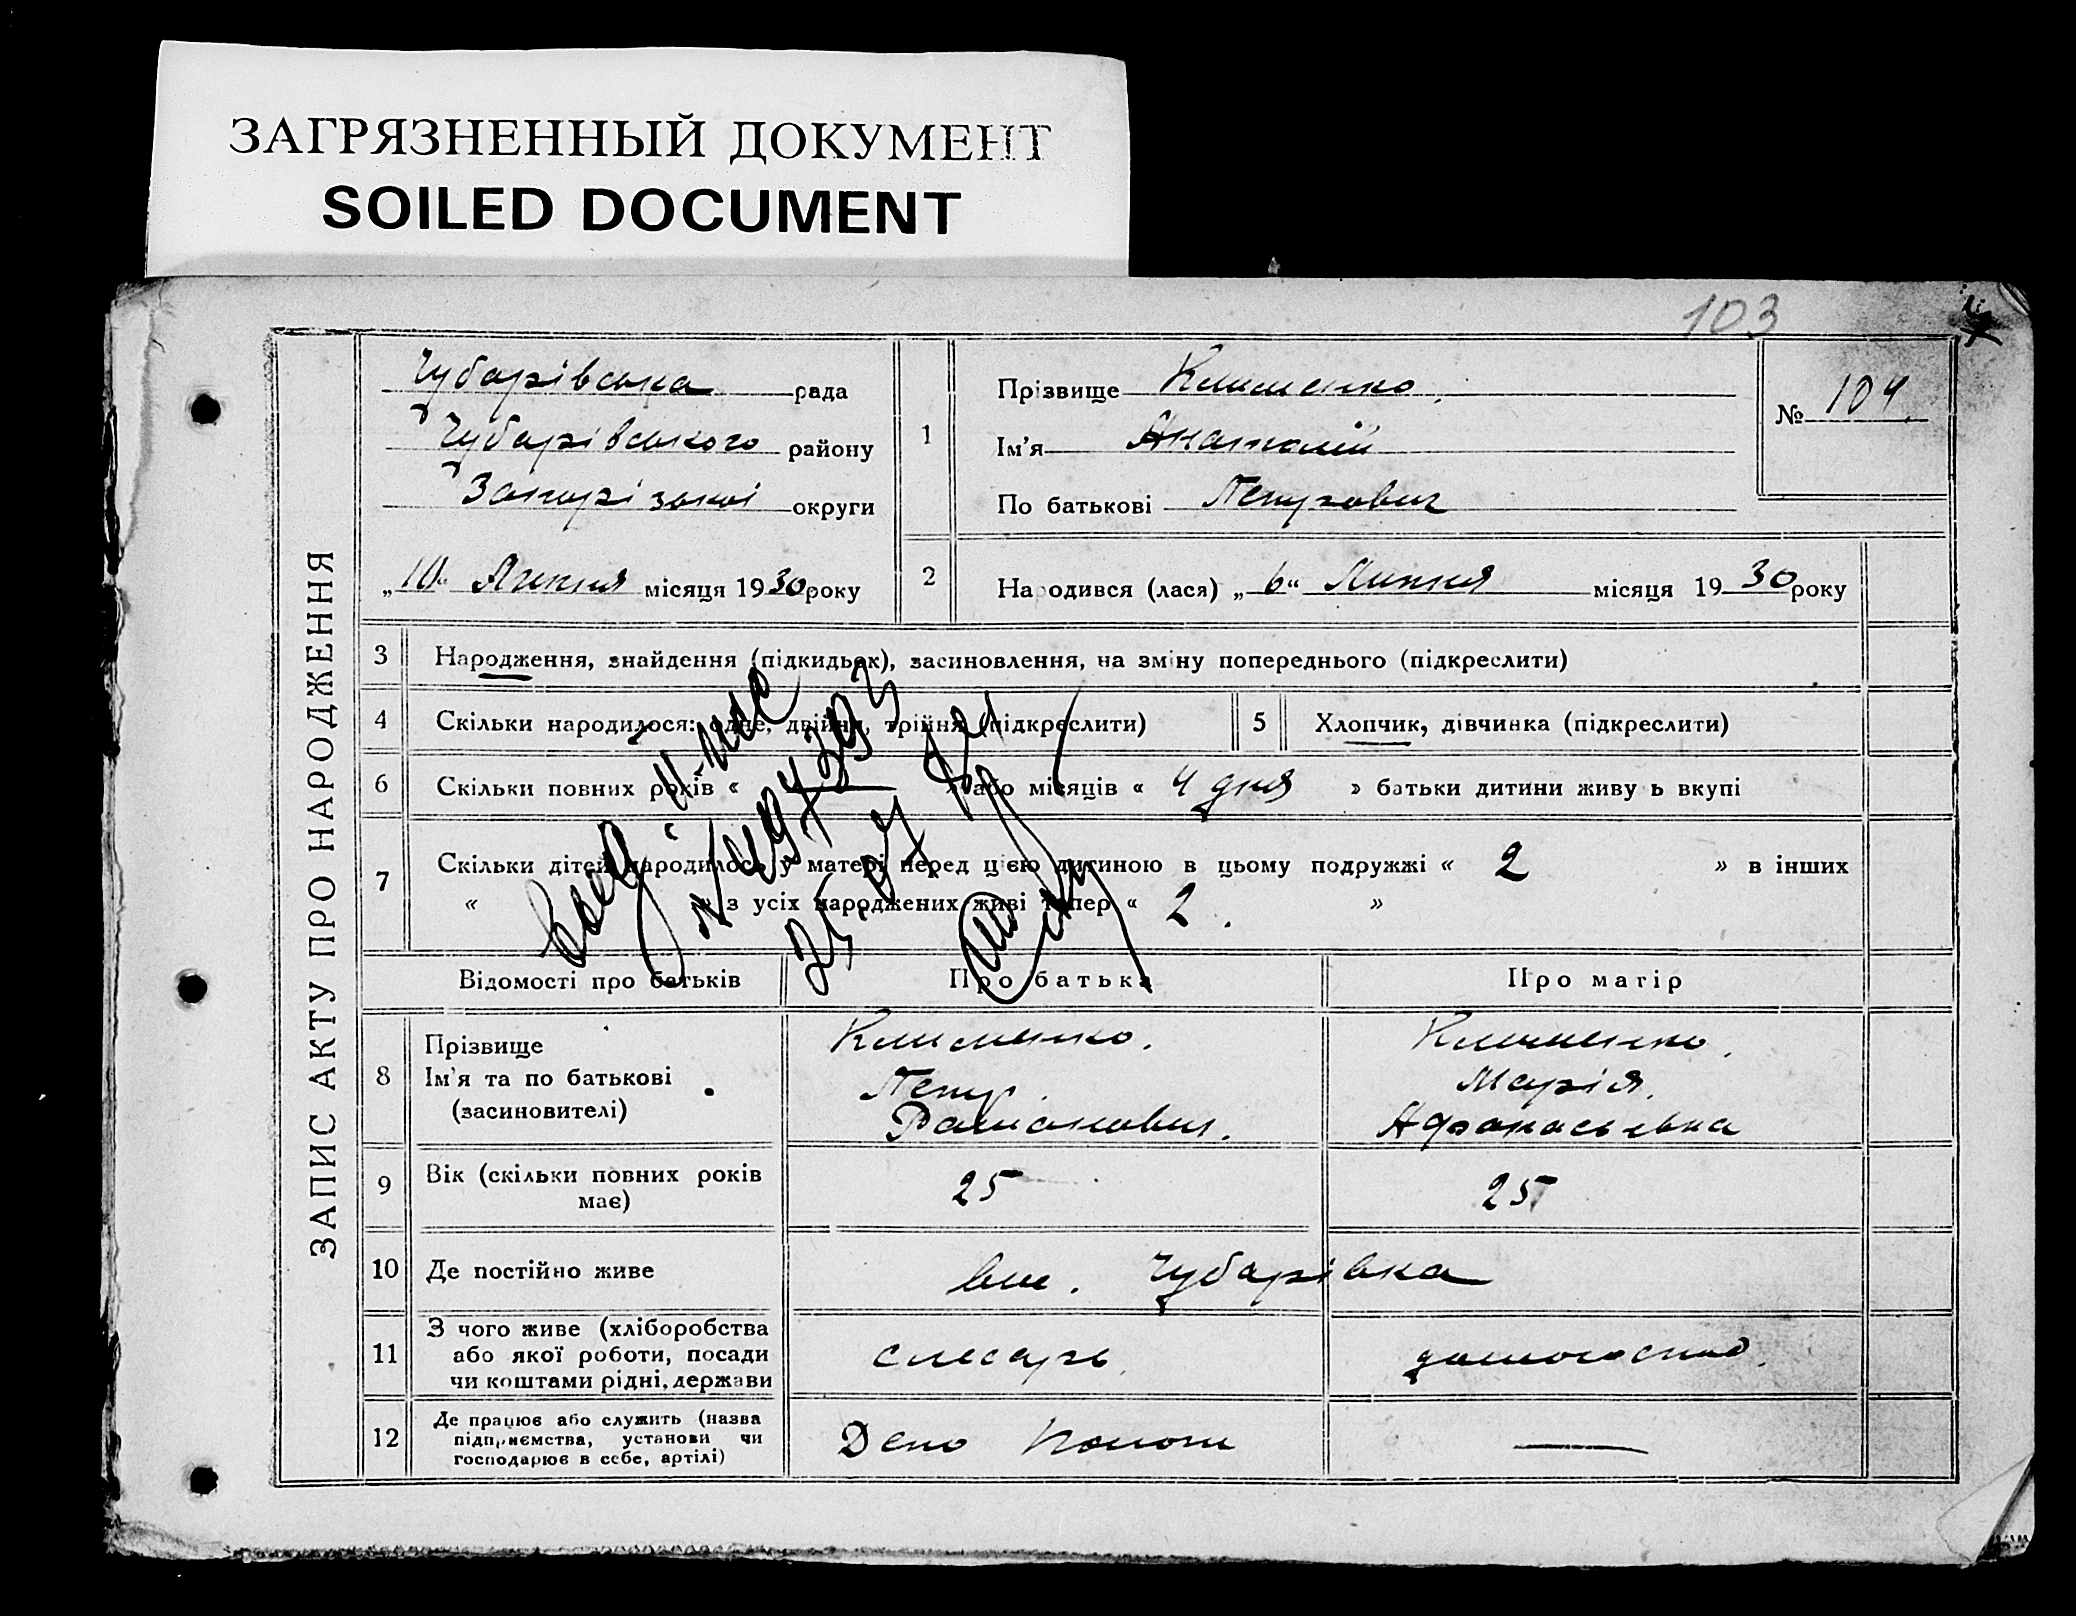 ЗАГРЯЗНЕННЫЙ ДОКУМЕНТ
SOILED DOCUMENT
103
ЗАПИС АКТУ ПРО НАРОДЖЕННЯ
Чубарівська рада
Чубарівського району
Запорізької округи
„10“ Липня місяця 1930 року
1
Прізвище Клименко
Ім'я Анатолій
По батькові Петрович
№ 104
2
Народився (лася) „6“ Липня місяця 1930 року
3 Народження, знайдення (підкидьок), засиновлення, на зміну попереднього (підкреслити)
4 Скільки народилося: одне, двійня, трійня (підкреслити)
5 Хлопчик, дівчинка (підкреслити)
6 Скільки повних років « — » або місяців « 4 дня » батьки дитини живуть вкупі
7 Скільки дітей народилось у матері перед цією дитиною в цьому подружжі « 2 » в інших
« » з усіх народжених живі тепер « 2. »
25.04
Відомості про батьків
Про батька
Про матір
8 Прізвище
Ім'я та по батькові
(засиновителі)
Клименко.
Петр
Клименко.
Марія.
Афанасьевна
9 Вік (скільки повних років
має)
25
25
10 Де постійно живе
Чубарівка
11 З чого живе (хліборобства
або якої роботи, посади
чи коштами рідні, держави
слесарь
12 Де працює або служить (назва
підприємства, установи чи
господарює в себе, артілі)
Депо Пологи
—